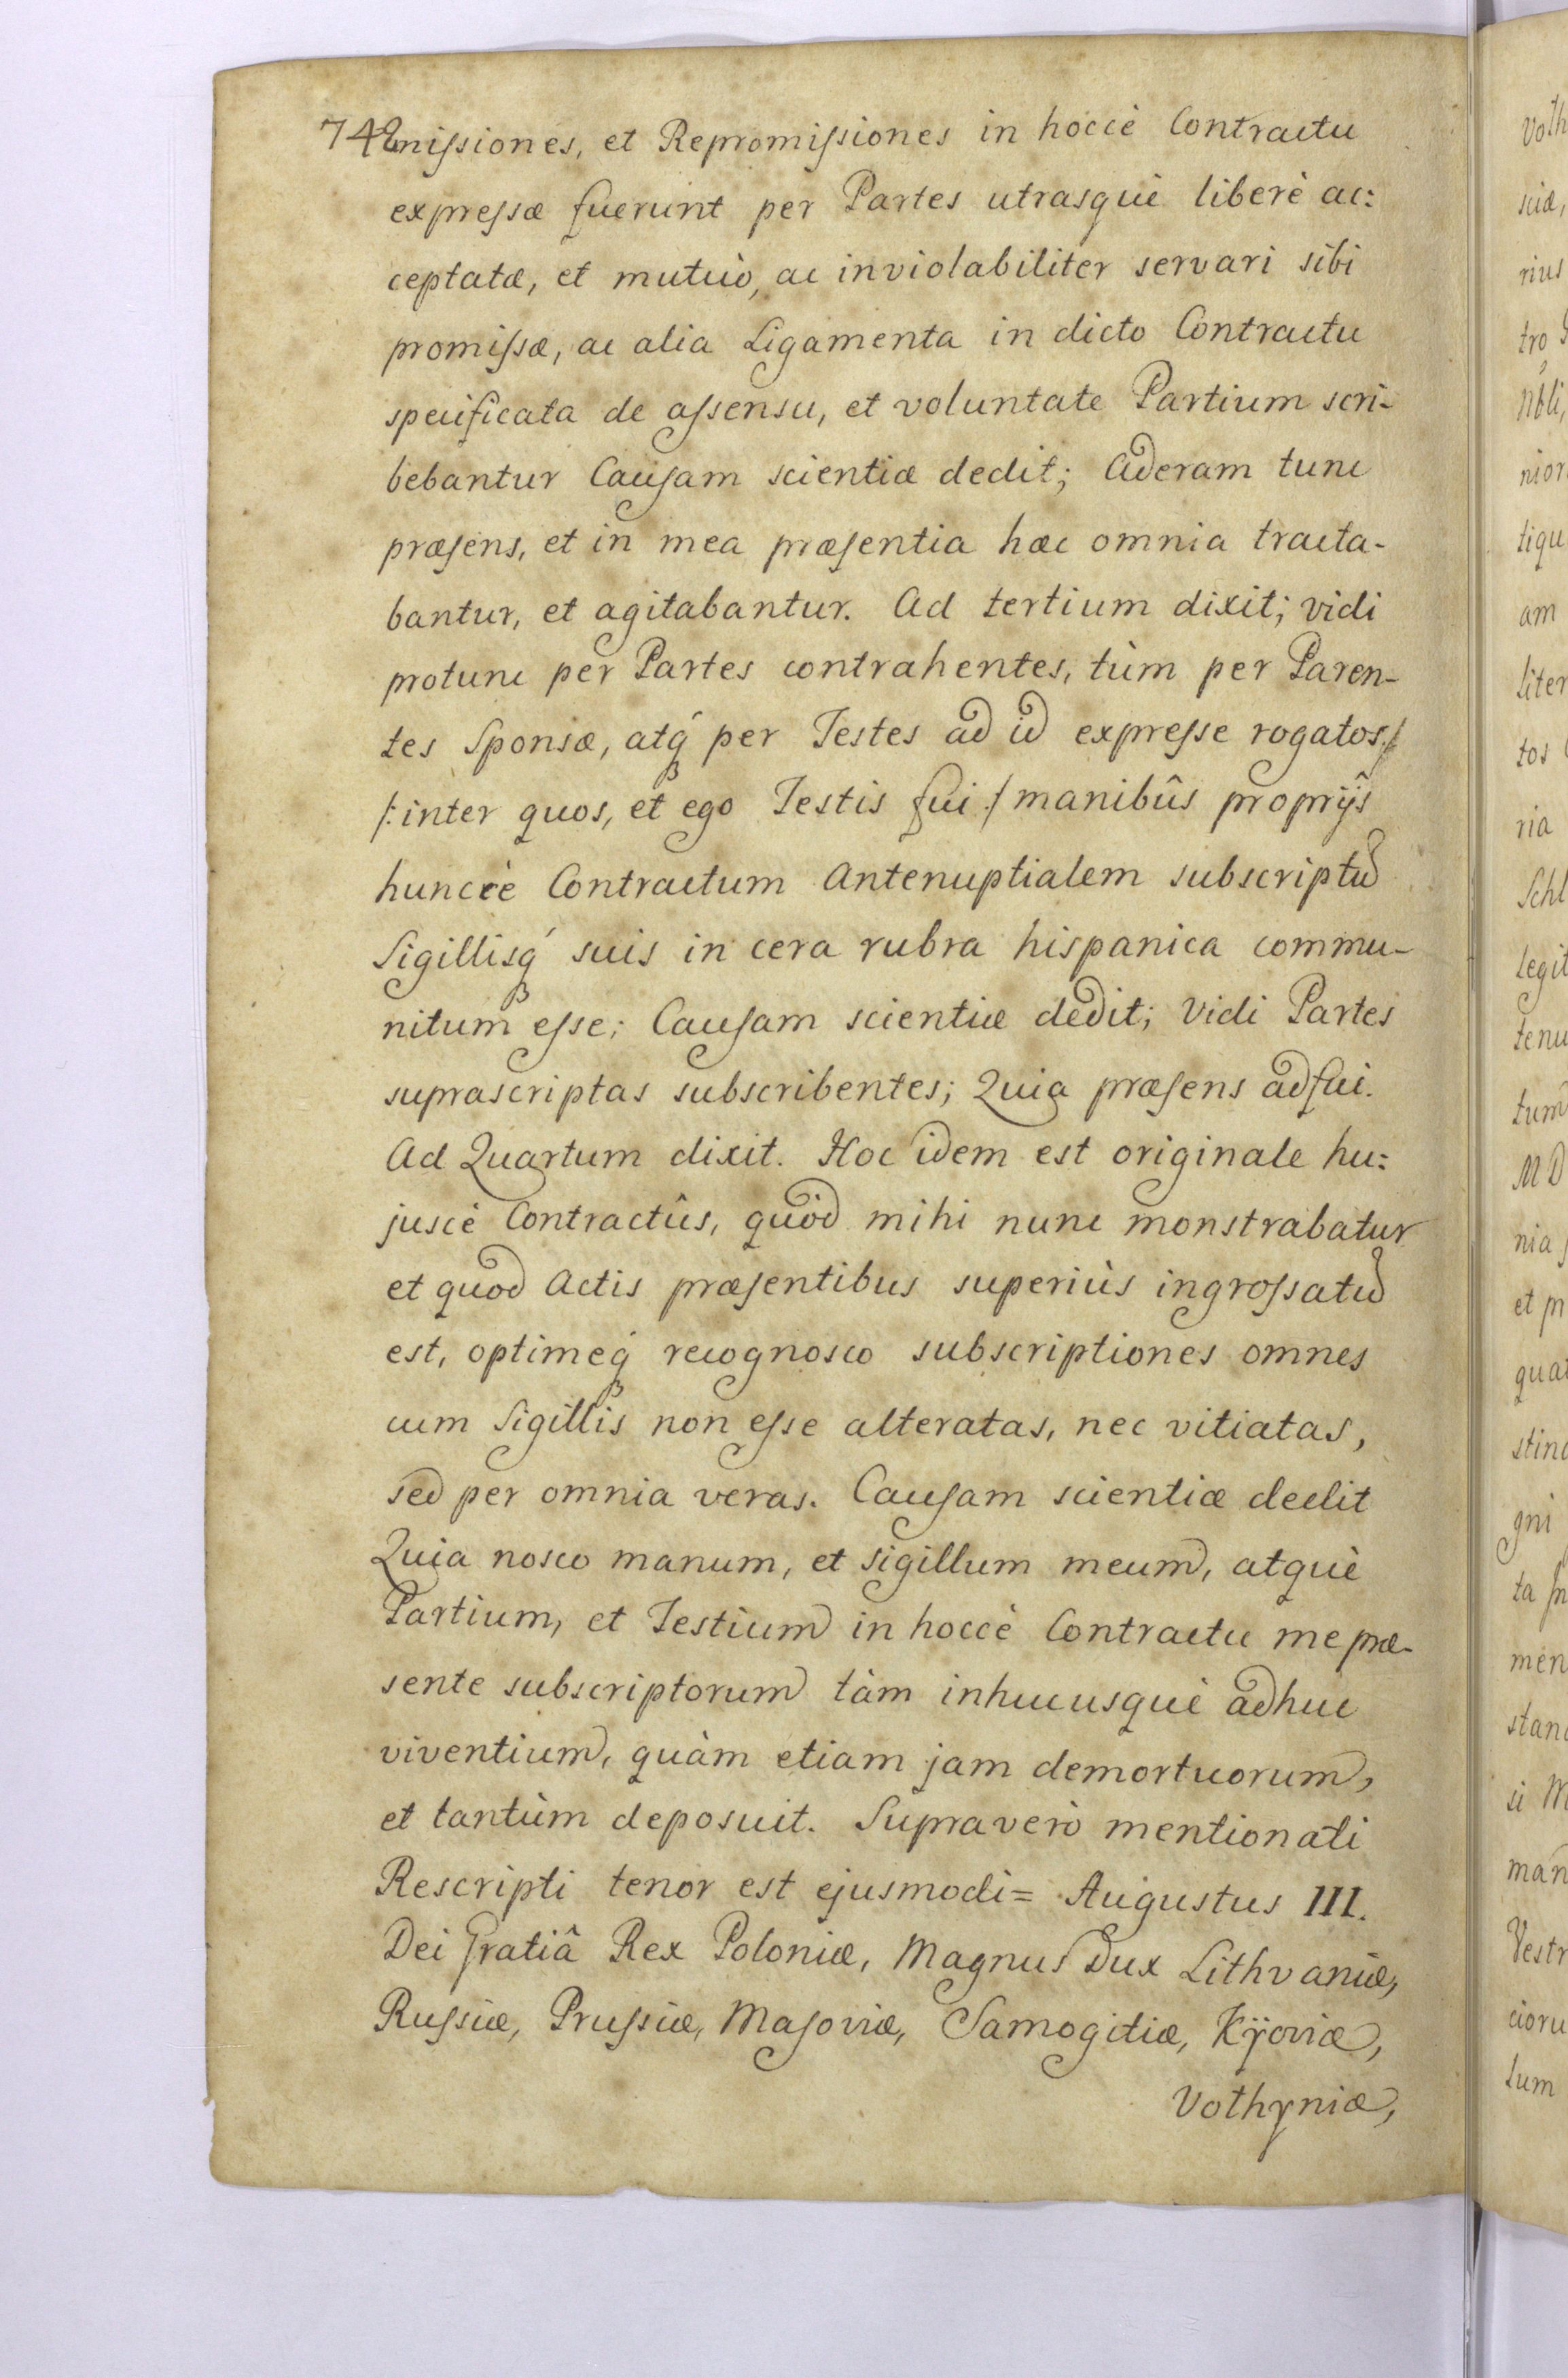 742
missiones, et Repromissiones in hoccè Contractu
expressæ fuerunt per Partes utrasquè liberè ac:
ceptatæ, et mutuò, ac inviolabiliter servari sibi
promissæ, ac alia Ligamenta in dicto Contractu
specificata de assensu, et voluntate Partium scri-
bebantur Causam scientiæ dedit; Aderam tunc
præsens, et in mea præsentia hæc omnia tracta-
bantur, et agitabantur. Ad tertium dixit; vidi
protunc per Partes contrahentes, tùm per Paren-
tes Sponsæ, atq́ per Testes ad id expresse rogatos./
/:inter quos, et ego Testis fui:/ manibûs proprijs
huncce Contractum Antenuptialem subscriptũ
Sigillisq́ suis in cera rubra hispanica commu-
nitum esse; Causam scientiæ dedit; Vidi Partes
suprascriptas subscribentes; Quia præsens adfui.
Ad Quartum dixit. Hoc idem est originale hu:
juscè Contractûs, quòd mihi nunc monstrabatur
et quod Actis præsentibus superiùs ingrossatũ
est, optimeq́ recognosco subscriptiones omnes
cum Sigillis non esse alteratas, nec vitiatas,
sed per omnia veras. Causam scientiæ dedit
Quia nosco manum, et sigillum meum, atquè
Partium, et Testium in hoccè Contractu me præ-
sente subscriptorum tàm inhucusquè adhuc
viventium, quàm etiam jam demortuorum,
et tantùm deposuit. Supraverò mentionati
Rescripti tenor est ejusmodi= Augustus III.
Dei Gratiâ Rex Poloniæ, Magnus Dux Lithvaniæ,
Russiæ, Prussiæ, Masoviæ, Samogitiæ, Kÿoviæ,
Vothyniæ,